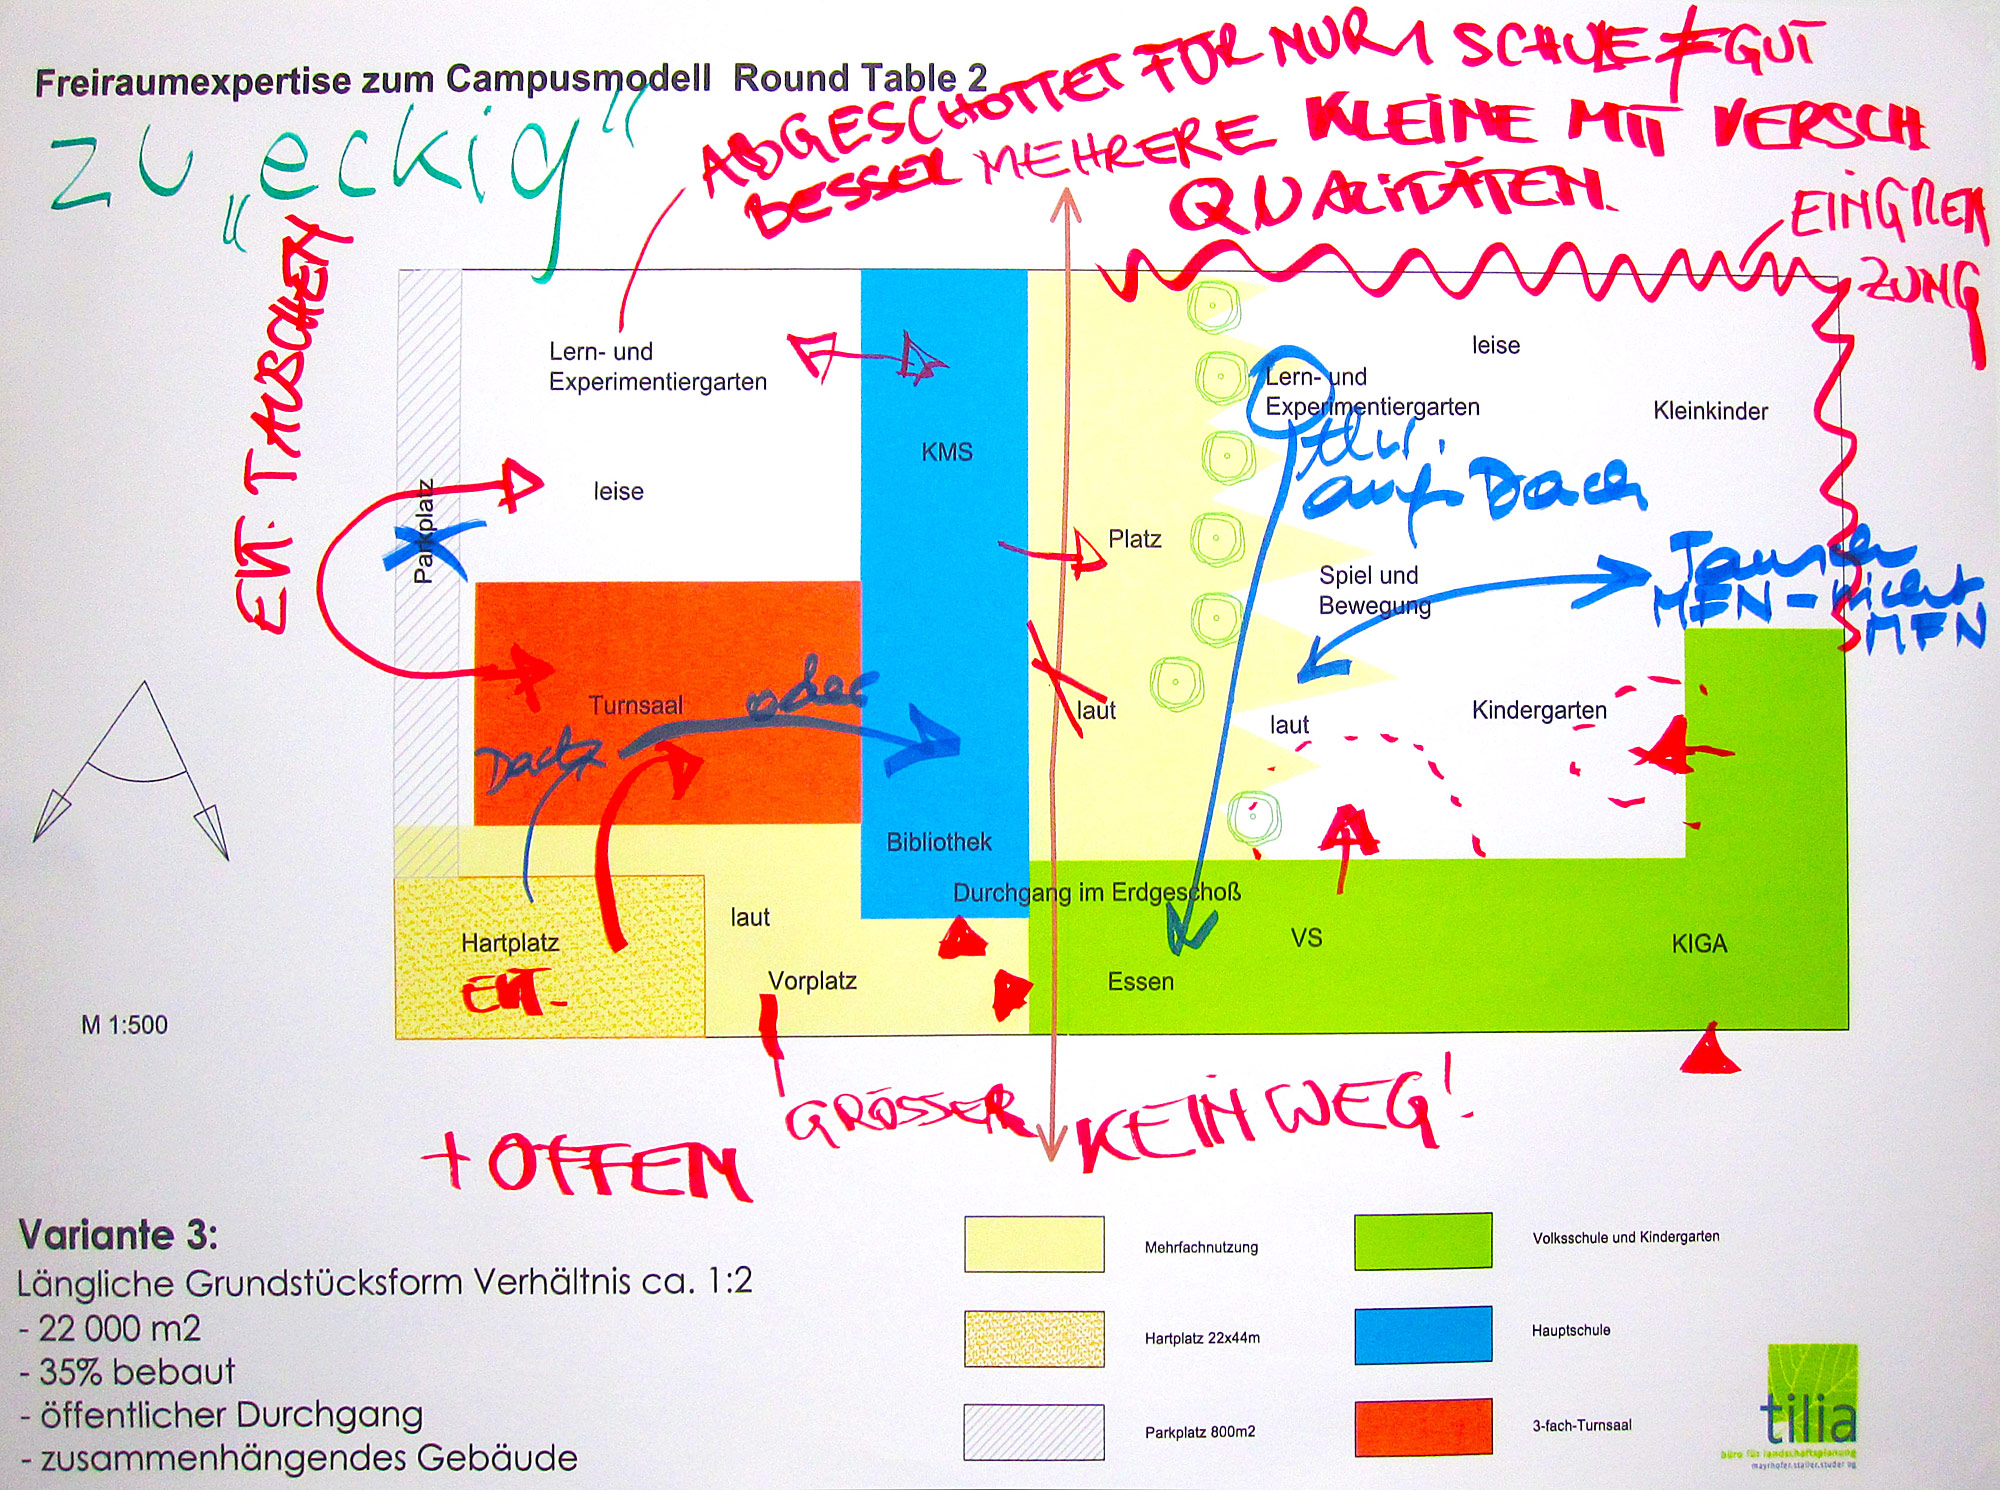 Freiraumexpertise zum Campusmodell Round Table 2
zu „eckig“
ABGESCHOTTET FÜR NUR 1 SCHULE ≠ GUT
BESSER MEHRERE KLEINE MIT VERSCH
QUALITÄTEN.
EINGREN
ZUNG
EVT. TAUSCHEN
Lern- und
Experimentiergarten
leise
Parkplatz
KMS
Platz
leise
Lern- und
Experimentiergarten
Kleinkinder
auf Dach
Spiel und
Bewegung
Tauschen
MFN - nicht
MFN
Turnsaal
Dach
oder
laut
laut
Kindergarten
Bibliothek
Durchgang im Erdgeschoß
laut
Hartplatz
EVT.
Vorplatz
Essen
VS
KIGA
M 1:500
GRÖSSER
+ OFFEN
KEIN WEG!
Variante 3:
Längliche Grundstücksform Verhältnis ca. 1:2
- 22 000 m2
- 35% bebaut
- öffentlicher Durchgang
- zusammenhängendes Gebäude
Mehrfachnutzung
Hartplatz 22x44m
Parkplatz 800m2
Volksschule und Kindergarten
Hauptschule
3-fach-Turnsaal
tilia
büro für landschaftsplanung
mayrhofer.staller.studer og